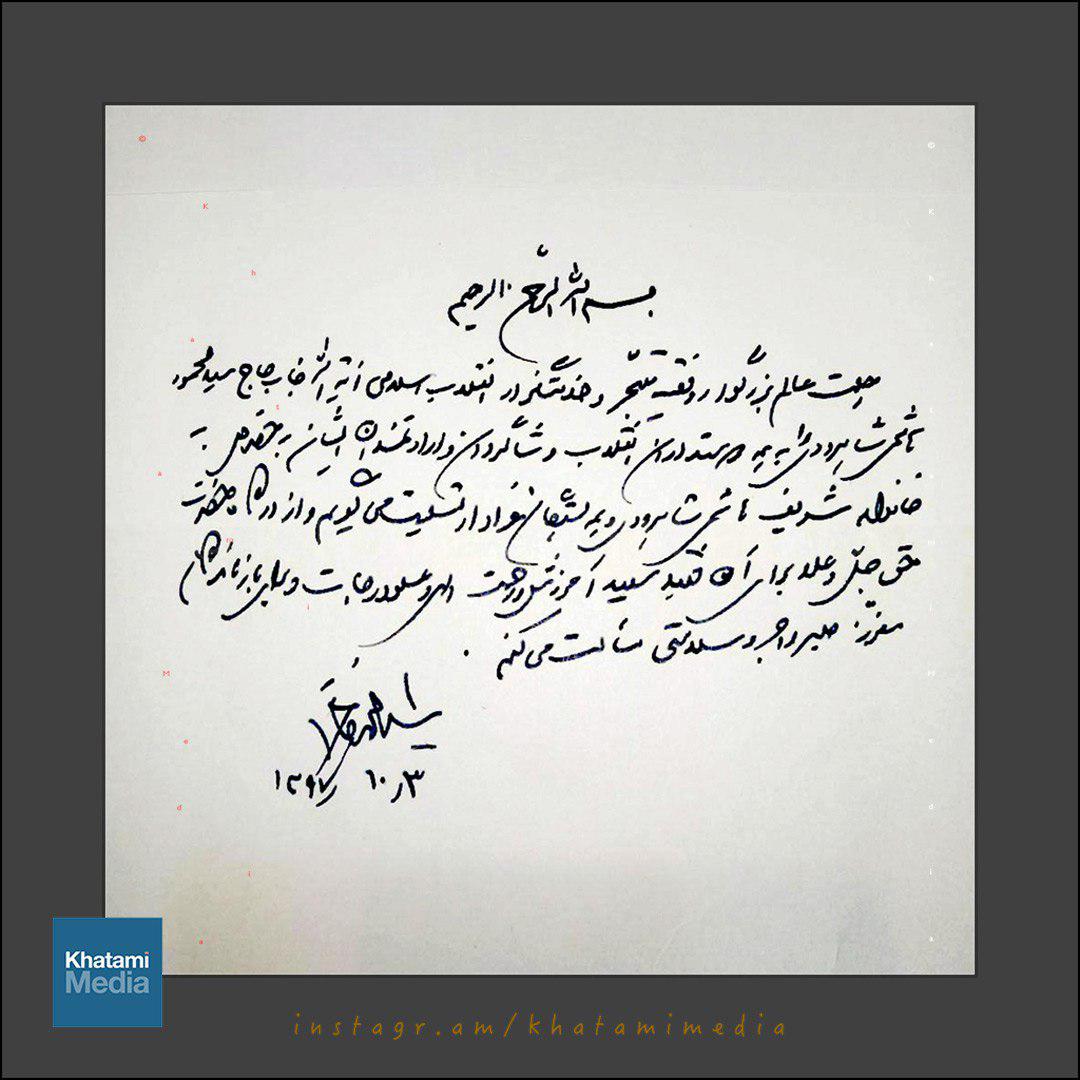 بسم الله الرحمن الرحیم
رحلت عالم بزرگوار و فقیه متبحّر و خدمتگزار انقلاب اسلامی آیة الله جناب حاج سید محمود
هاشمی شاهرودی را به همه دوستداران انقلاب و شاگردان و ارادتمندان ایشان به خصوص به
خانواده شریف هاشمی شاهرودی و همه بستگان عزادار تسلیت می گویم و از درگاه حضرت
حق جلّ و علا برای آن فقید سعید آمرزش و رحمت الهی و علو درجات و برای بازماندگان
معزّز صبر و اجر و سلامتی مسألت می کنم.
سید محمد خاتمی
۱۳۹۷ر ۱۰ر۳
Khatami
Media
instagr.am/khatamimedia